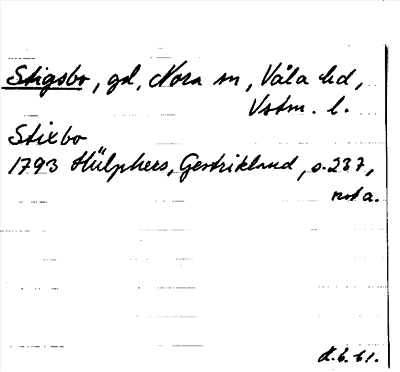 Stigsbo, gd, Nora sn, Våla hd,
Vstm. l.
Stixbo
1793 Hülphers, Gestrikland, s. 237,
not a.